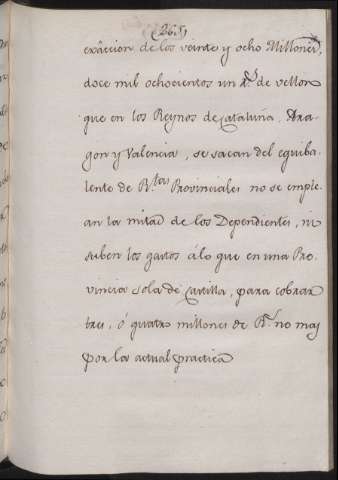 (26.)
exâccion de los veinte y ocho Millones,
doce mil ochocientos un r.s de vellon
que en los Reynos de Cataluña, Ara-
gon y Valencia, se sacan del equiba-
lente de R.tas Provinciales no se emple-
an la mitad de los Dependientes, ni
suben los gastos á lo que en una Pro-
vincia sola de Castilla, para cobrar
tres, ó quatro millones de R.s no mas
por la actual practica